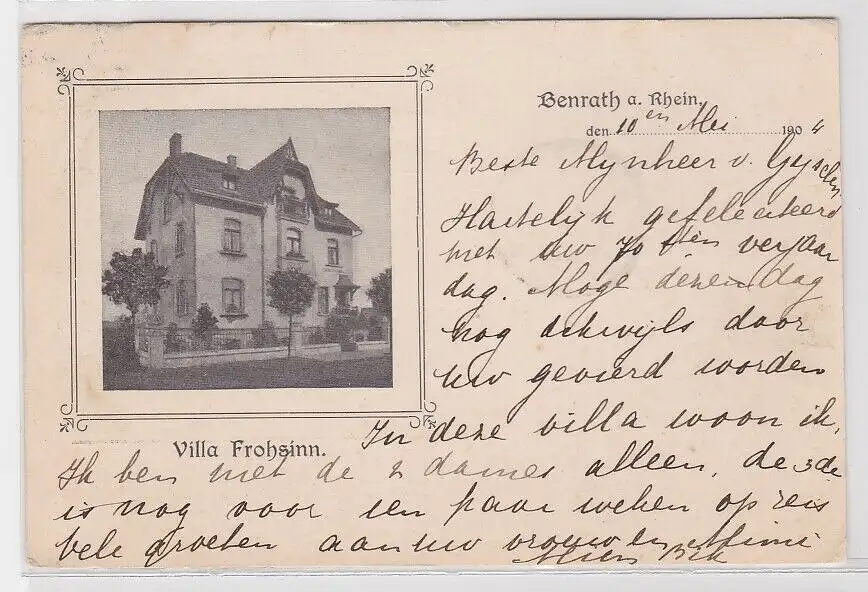 Benrath a. Rhein,
den 10en Mei 1904
Beste Mynheer v. Gyselen
Hartelijk gefeleciteerd
met uw 70sten verjaar
dag. Moge dezen dag
nog dikwijls door
uw gevierd worden
In deze villa woon ik,
Villa Frohsinn.
Ik ben met de 2 dames alleen, de 3de
is nog voor een paar weken op reis
vele groeten aan uw vrouw en Mimi
Mien